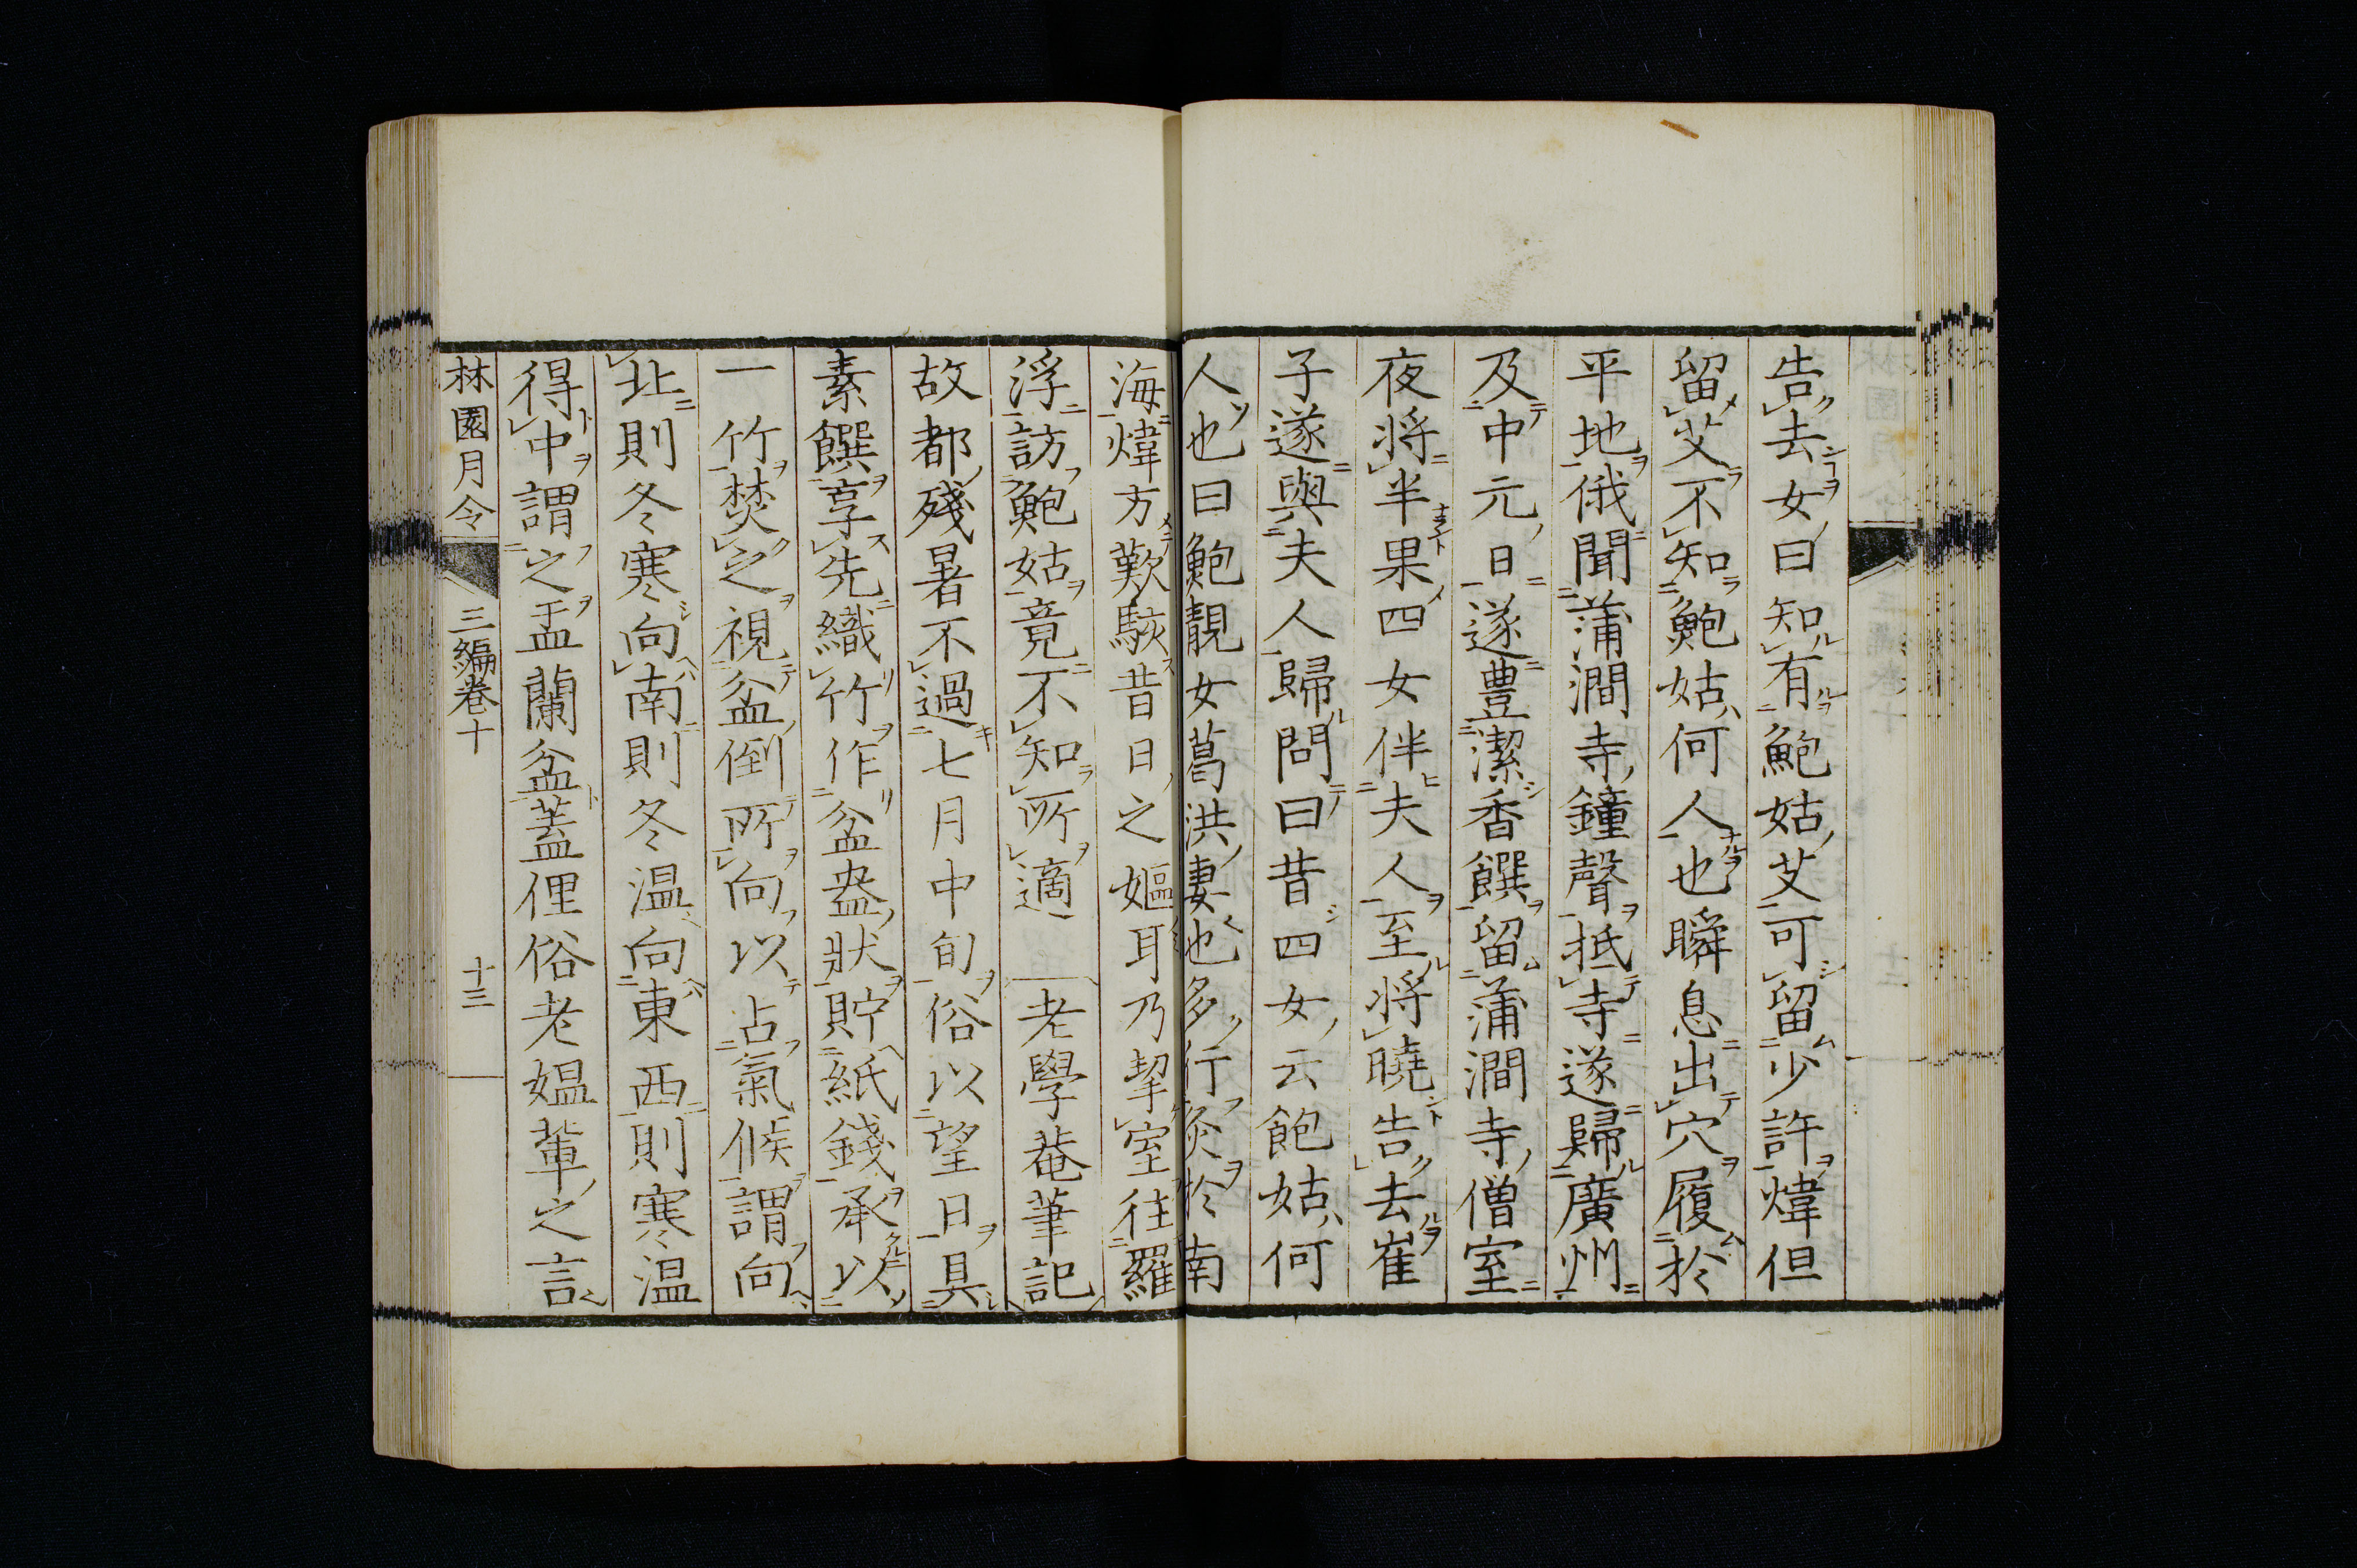 告去女曰知有鮑姑艾可留少許煒但
留艾不知鮑姑何人也瞬息出穴履於
平地俄聞蒲澗寺鐘聲抵寺遂歸廣州
及中元日遂豊潔香饌留蒲澗寺僧室
夜將半果四女伴夫人至將曉告去崔
子遂與夫人歸問曰昔四女云鮑姑何
人也曰鮑靚女葛洪妻也多行灸於南
海煒方歎駭昔日之嫗耳乃挈室往羅
浮訪鮑姑竟不知所適 老學菴筆記
故都殘暑不過七月中旬俗以望日具
素饌享先織竹作盆盎狀貯紙錢承以
一竹焚之視盆倒所向以占氣候謂向
北則冬寒向南則冬温向東西則寒温
得中謂之盂蘭盆蓋俚俗老媼輩之言
林園月令 三編卷十 十三